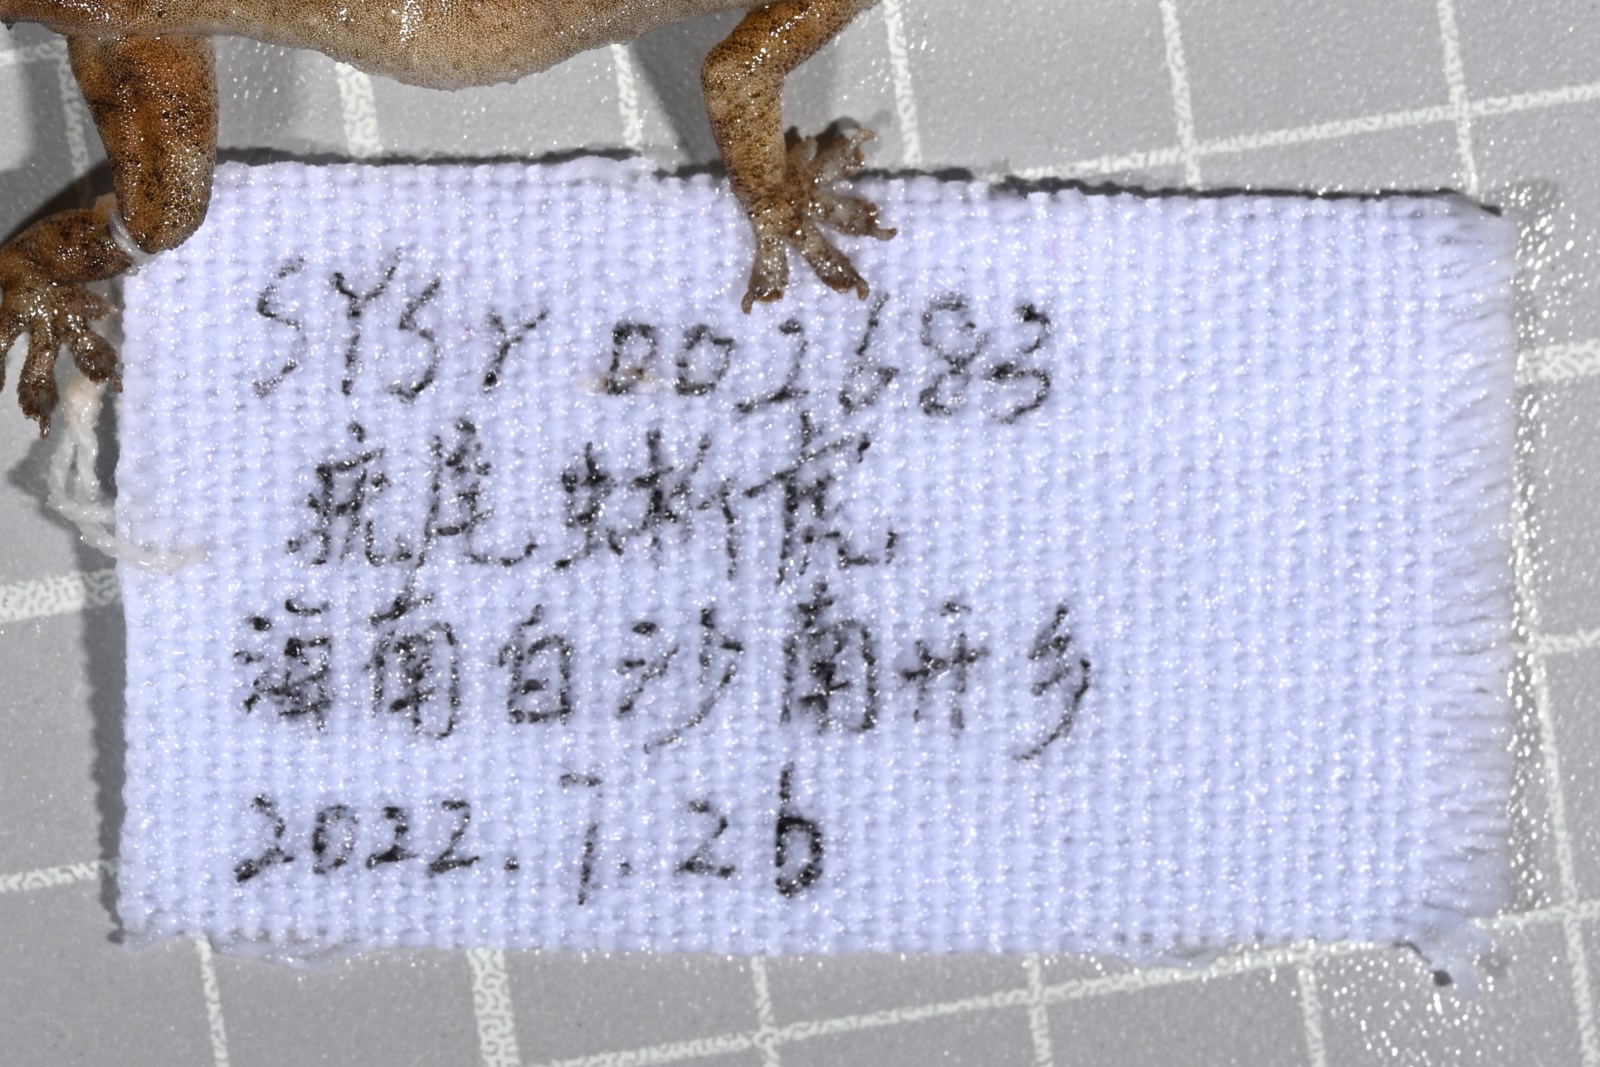 SYS r 002683
疣尾蜥虎
海南白沙南开乡
2022.7.26